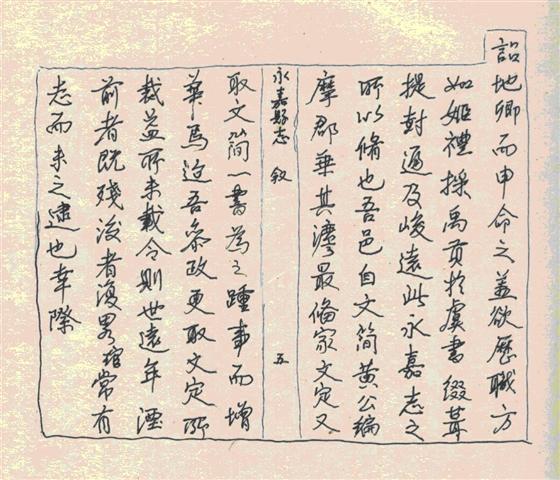 詔地卿而申命之盖欲歷職方
如姬禮採禹貢於虞書綴葺
提封通及峻遠此永嘉志之
所以脩也吾邑自文简黄公编
摩郡乘其灣最俻家文定又
永嘉縣志 叙 五
取文简一書為之踵事而增
華馬迨吾叅政更取文定所
裁益所未載今則世遠年湮
前者既殘後者復畧琯常有
志而未之逮也幸際